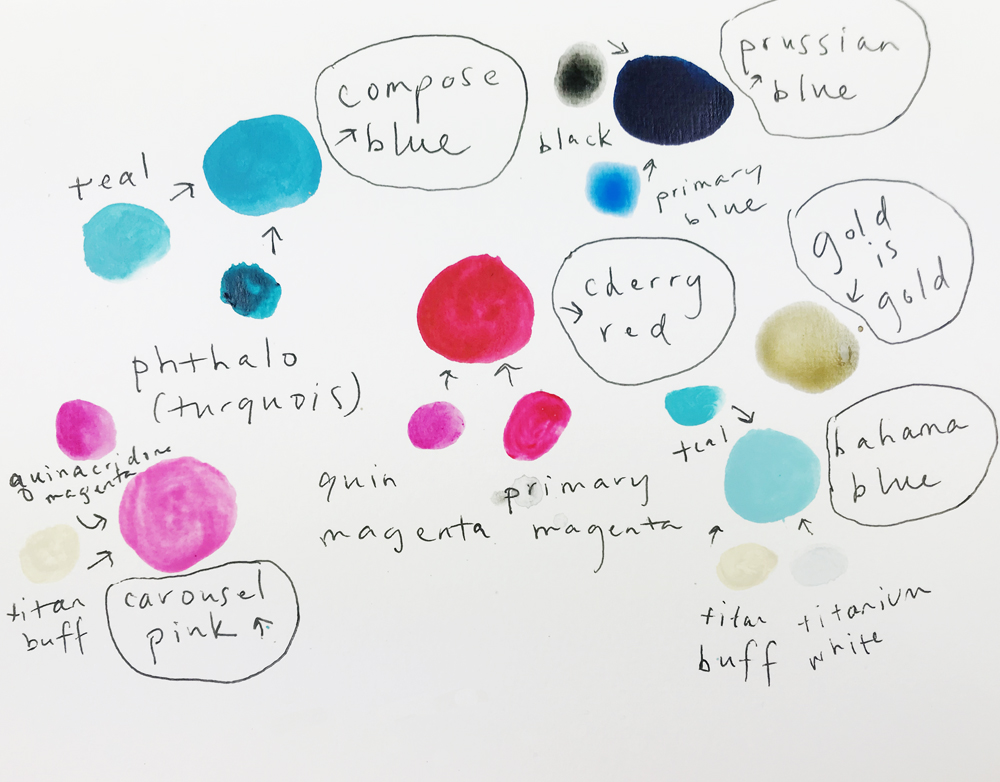 compose
blue
teal
phthalo
(turquois)
prussian
blue
black
primary
blue
gold
is
gold
cherry
red
quin
magenta
primary
magenta
teal
bahama
blue
titan
buff
titanium
white
quinacridone
magenta
titan
buff
carousel
pink